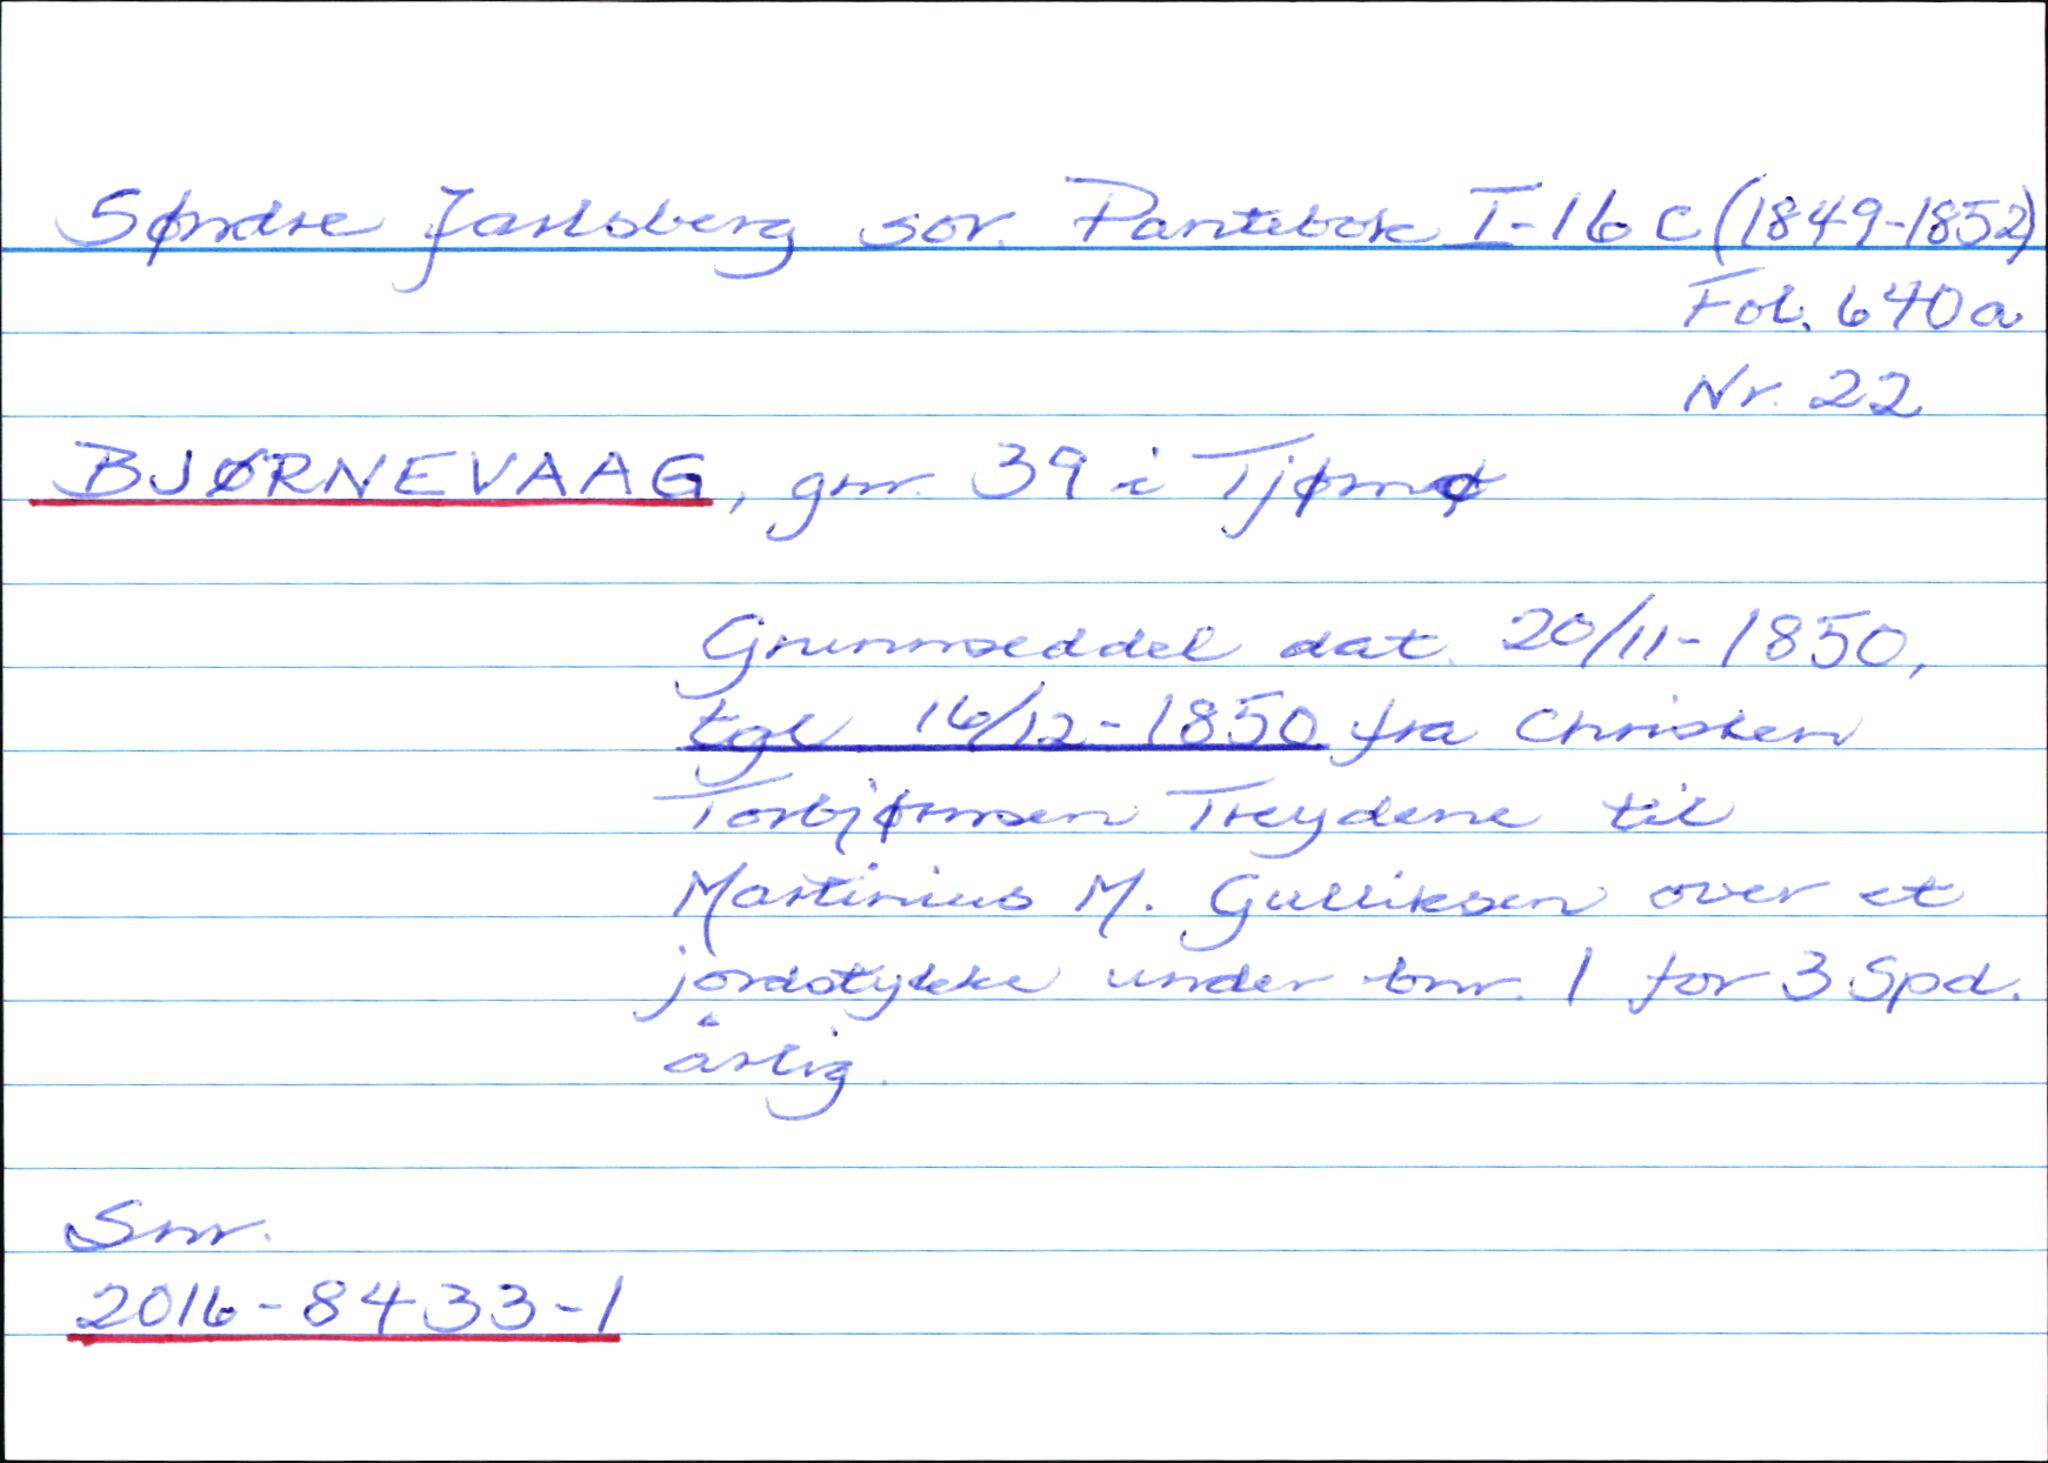 Søndre Jarlsberg sor. Pantebok I-16 c (1849-1852)
Fol. 640a
Nr. 22
BJØRNEVAAG, gnr. 39 i Tjømø
Grunnseddel dat. 20/11-1850,
tgl 16/12-1850 fra Christen
Torbjørnsen Treydene til
Martinius M. Gulliksen over et
jordstykke under bnr. 1 for 3 Spd.
årlig.
Snr.
2016-8433-1